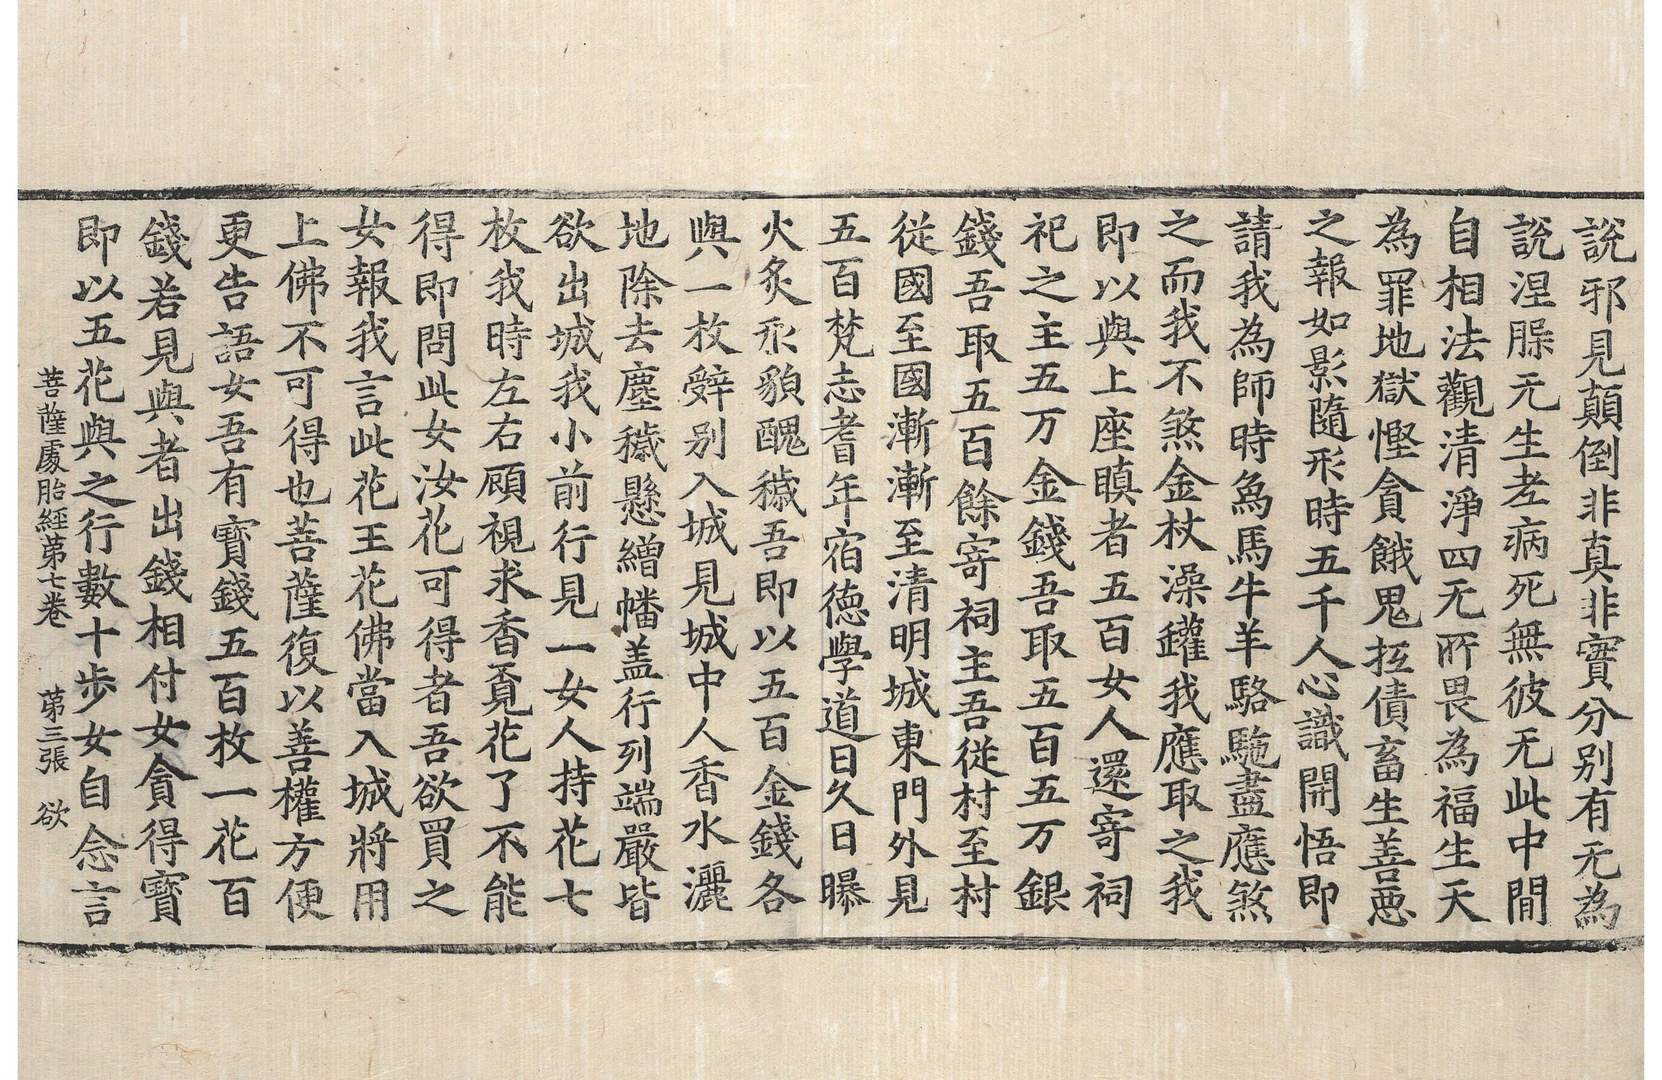 說邪見顛倒非真非實分别有无為
說涅㬷无生老病死無彼无此中間
自相法觀清淨四无所畏為福生天
為罪地獄慳貪餓鬼抂債畜生善惡
之報如影隨形時五千人心識開悟即
請我為師時為馬牛羊駱駞盡應煞
之而我不煞金杖澡鑵我應取之我
即以與上座瞋者五百女人還寄祠
祀之主五万金錢吾取五百五万銀
錢吾取五百餘寄祠主吾從村至村
從國至國漸漸至清明城東門外見
五百梵志耆年宿德學道日久日曝
火炙形貌醜穢吾即以五百金錢各
與一枚辝别入城見城中人香水灑
地除去塵穢懸繒幡盖行列端嚴皆
欲出城我小前行見一女人持花七
枚我時左右顧視求香覓花了不能
得即問此女汝花可得者吾欲買之
女報我言此花王花佛當入城將用
上佛不可得也菩薩復以善權方便
更告語女吾有寳錢五百枚一花百
錢若見與者出錢相付女貪得寶
即以五花與之行數十步女自念言
菩薩處胎經苐七卷 苐三張 欲